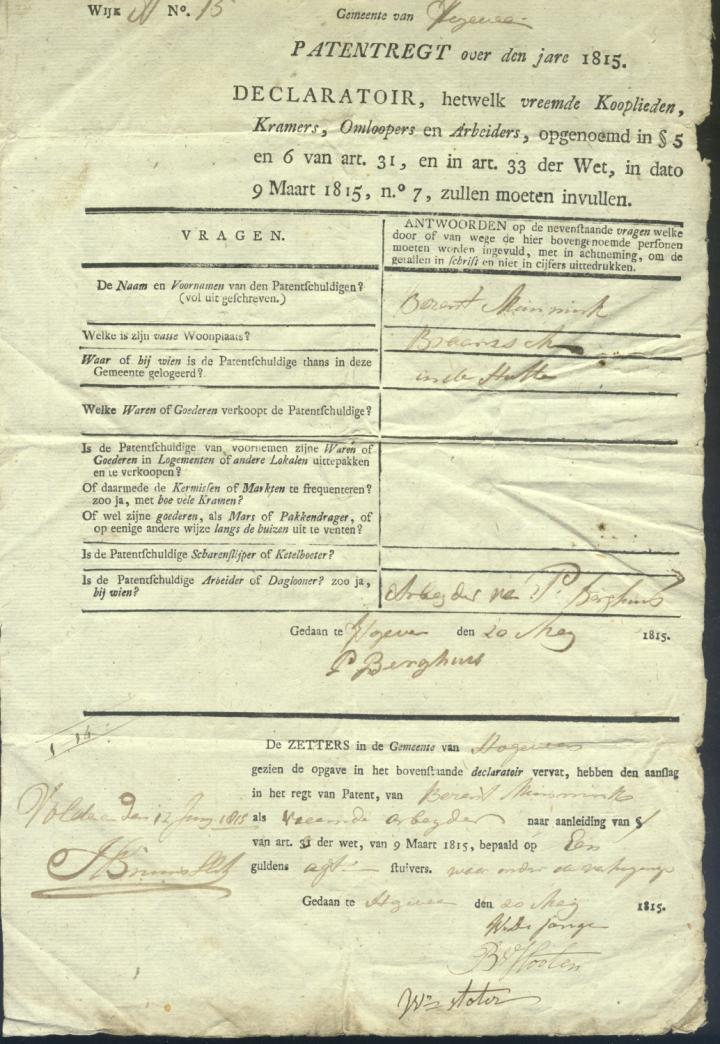 WIJK A N.o 15
Gemeente van Hogevee
PATENTREGT over den jare 1815.
DECLARATOIR, hetwelk vreemde Kooplieden,
Kramers, Omloopers en Arbeiders, opgenoemd in § 5
en 6 van art. 31, en in art. 33 der Wet, in dato
9 Maart 1815, n.o 7, zullen moeten invullen.
VRAGEN.
ANTWOORDEN op de nevenſtaande vragen welke
door of van wege de hier bovengenoemde perſonen
moeten worden ingevuld, met in achtneming, om de
getallen in ſchrift en niet in cijfers uittedrukken.
De Naam en Voornamen van den Patentſchuldigen?
(vol uit geſchreven.)
Berent
Welke is zijn vaste Woonplaats?
Waar of bij wien is de Patentſchuldige thans in deze
Gemeente gelogeerd?
in de Hutte
Welke Waren of Goederen verkoopt de Patentſchuldige?
Is de Patentſchuldige van voornemen zijne Waren of
Goederen in Logementen of andere Lokalen uittepakken
en te verkoopen?
Of daarmede de Kermisſen of Markten te frequenteren?
zoo ja, met hoe vele Kramen?
Of wel zijne goederen, als Mars of Pakkendrager, of
op eenige andere wijze langs de huizen uit te venten?
Is de Patentſchuldige Scharenſlijper of Ketelboeter?
Is de Patentſchuldige Arbeider of Daglooner? zoo ja,
bij wien?
Arbeyder van P. Berghuis
Gedaan te Hogevee den 20 May 1815.
P Berghuis
De ZETTERS in de Gemeente van Hogeveen
gezien de opgave in het bovenſtaande declaratoir vervat, hebben den aanſlag
in het regt van Patent, van Berent
Voldaan den 12 Juny 1815
als vreemde arbeyder naar aanleiding van §
van art. 31 der wet, van 9 Maart 1815, bepaald op Een
guldens agt ſtuivers. waar onder de verhoging
Gedaan te Hogevee den 20 May 1815.
W. De Jonge